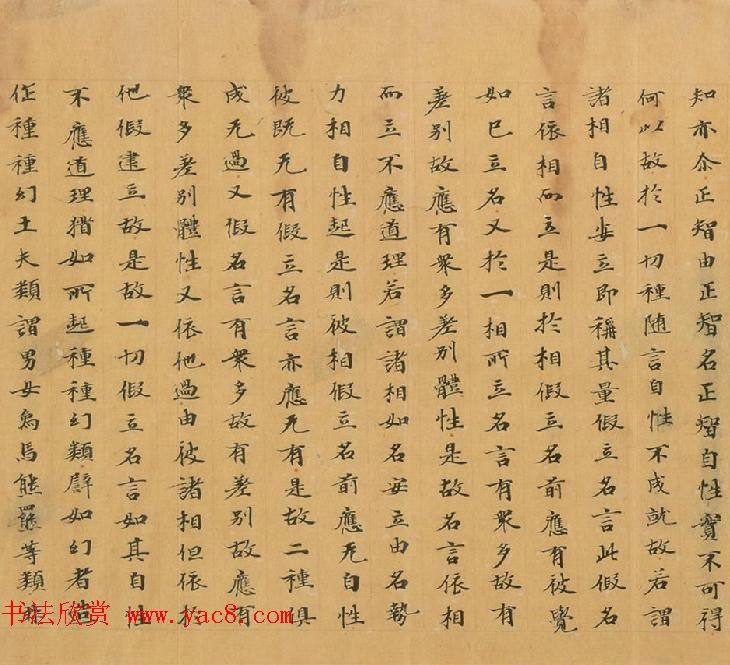 知亦尒正智由正智名正智自性實不可得
何以故於一切種随言自性不成就故若謂
諸相自性安立即稱其量假立名言此假名
言依相而立是則於相假立名前應有彼覺
如已立名又於一相所立名言有衆多故有
差別故應有衆多差別體性是故名言依相
而立不應道理若謂諸相如名安立由名勢
力相自性起是則彼相假立名前應无自性
彼既无有假立名言亦應无有是故二種俱
成无過又假名言有衆多故有差別故應有
衆多差別體性又依他過由彼諸相但依於
他假建立故是故一切假立名言如其自性
不應道理猶如所起種種幻類譬如幻者造
作種種幻士夫類謂男女象馬熊羆等類非
书法欣赏 www.yac8.com